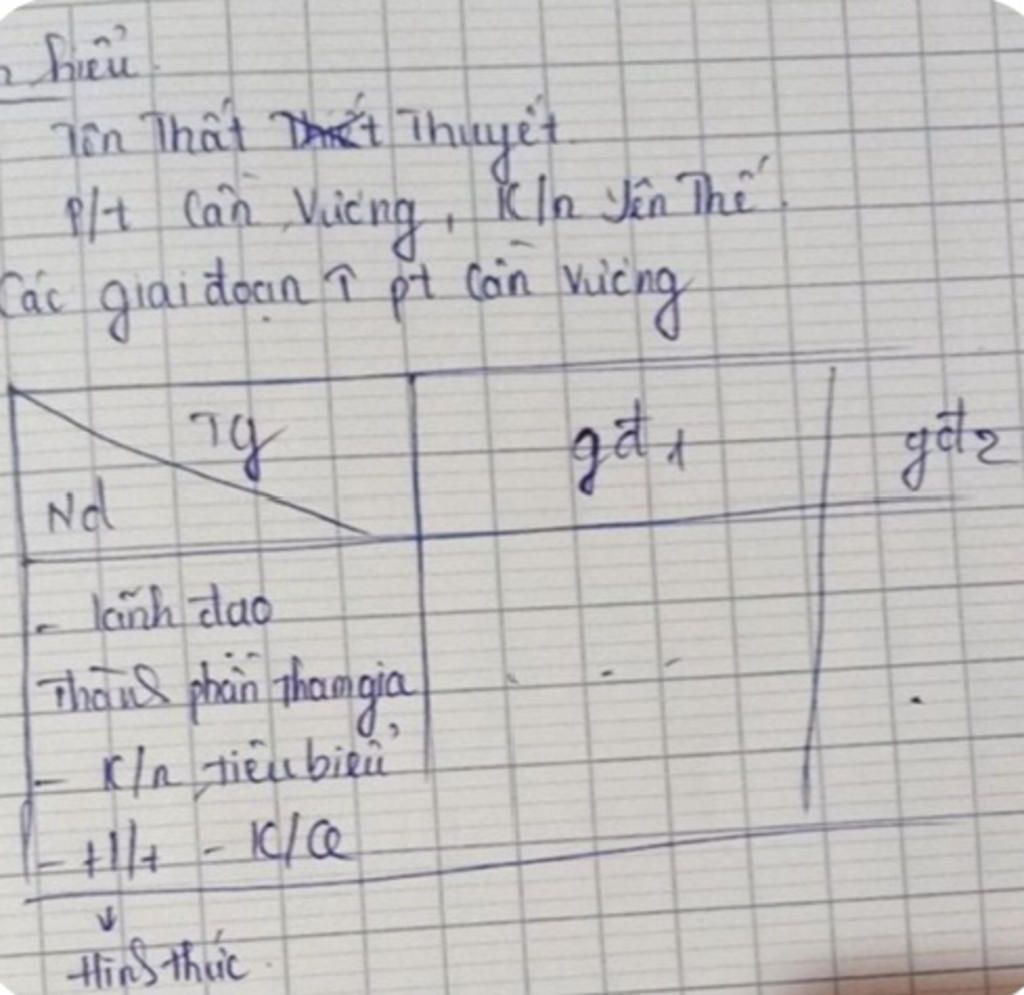 hiểu.
Tôn Thất Thuyết
P/t Cần Vương, K/n Yên Thế.
Các giai đoạn ↑ pt Cần Vương
Tg gđ 1 gđ 2
Nd
- lãnh đạo
Thành phần tham gia
- K/n tiêu biểu
- - K/Q
↓
Hình thức